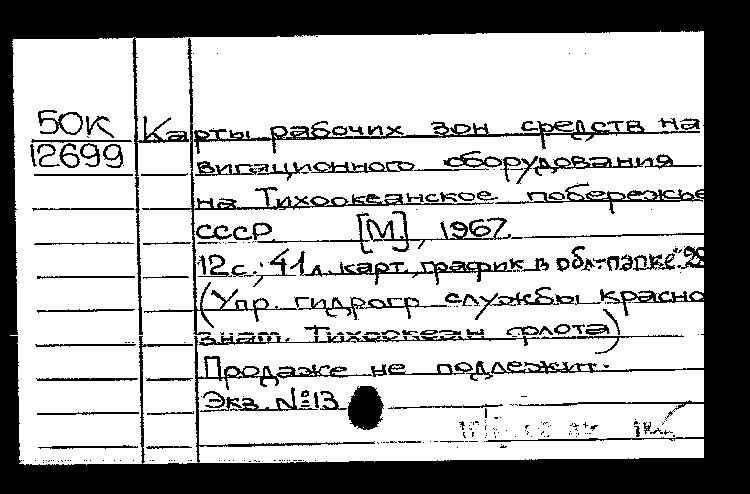 50К
12699
Карты рабочих зон средств на
вигационного оборудования
на Тихоокеанское побережье
СССР. [М.], 1967.
12 с.; 41 л. карт., график в обл.-папке. 28
(Упр. гидрогр службы красно
знам. Тихоокеан флота)
Продаже не подлежит.
Экз. №13